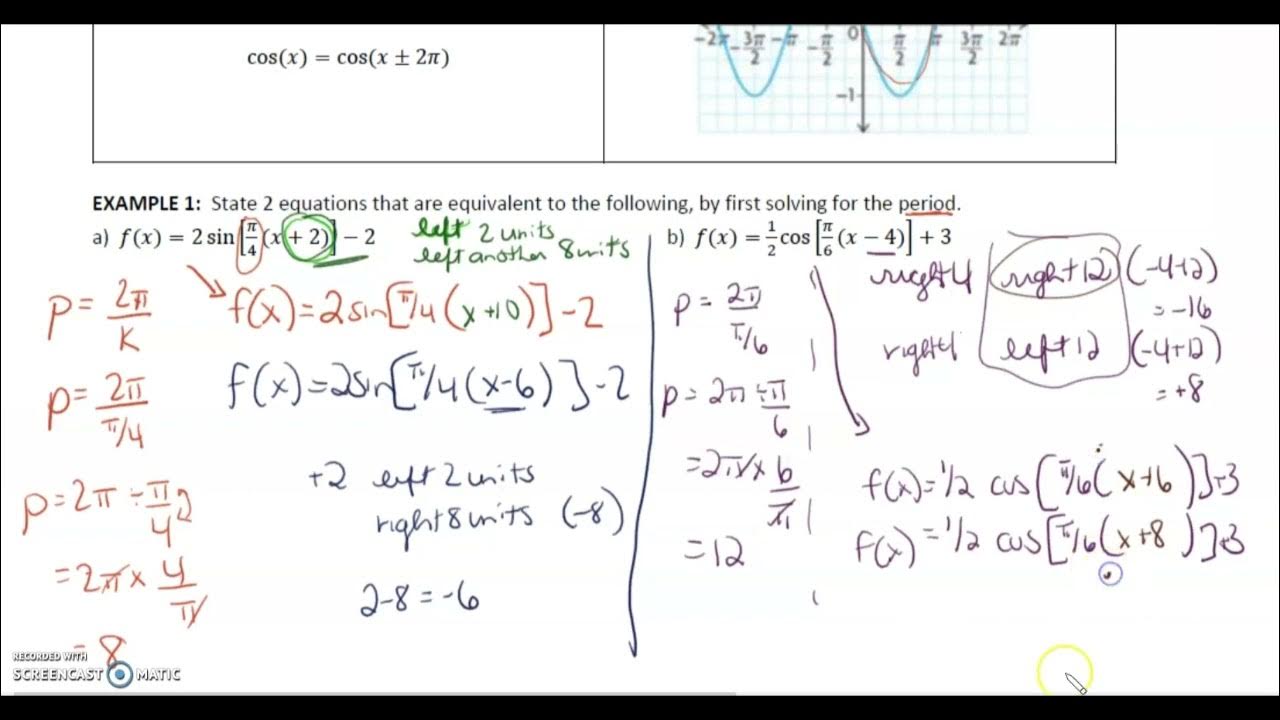 cos(x) = cos(x ± 2π)
-2π -3π/2 -π -π/2 0 π/2 π 3π/2 2π
-1
EXAMPLE 1: State 2 equations that are equivalent to the following, by first solving for the period.
a) f(x) = 2 sin[π/4(x + 2)] − 2
left 2 units
left another 8 units
P = 2π/K
f(x) = 2sin[π/4(x+10)] -2
P = 2π/π/4
f(x) = 2sin[π/4(x-6)] -2
P = 2π ÷ π/4
+2 left 2 units
right 8 units (-8)
= 2π × 4/π
2-8 = -6
= 8
b) f(x) = 1/2 cos[π/6(x − 4)] + 3
right 4 right 12 (-4+12)
= -16
right 4 left 12 (-4+12)
= +8
P = 2π/π/6
P = 2π ÷ π/6
= 2π × 6/π
= 12
f(x) = 1/2 cos[π/6(x+6)]+3
f(x) = 1/2 cos[π/6(x+8)]+3
RECORDED WITH
SCREENCAST MATIC